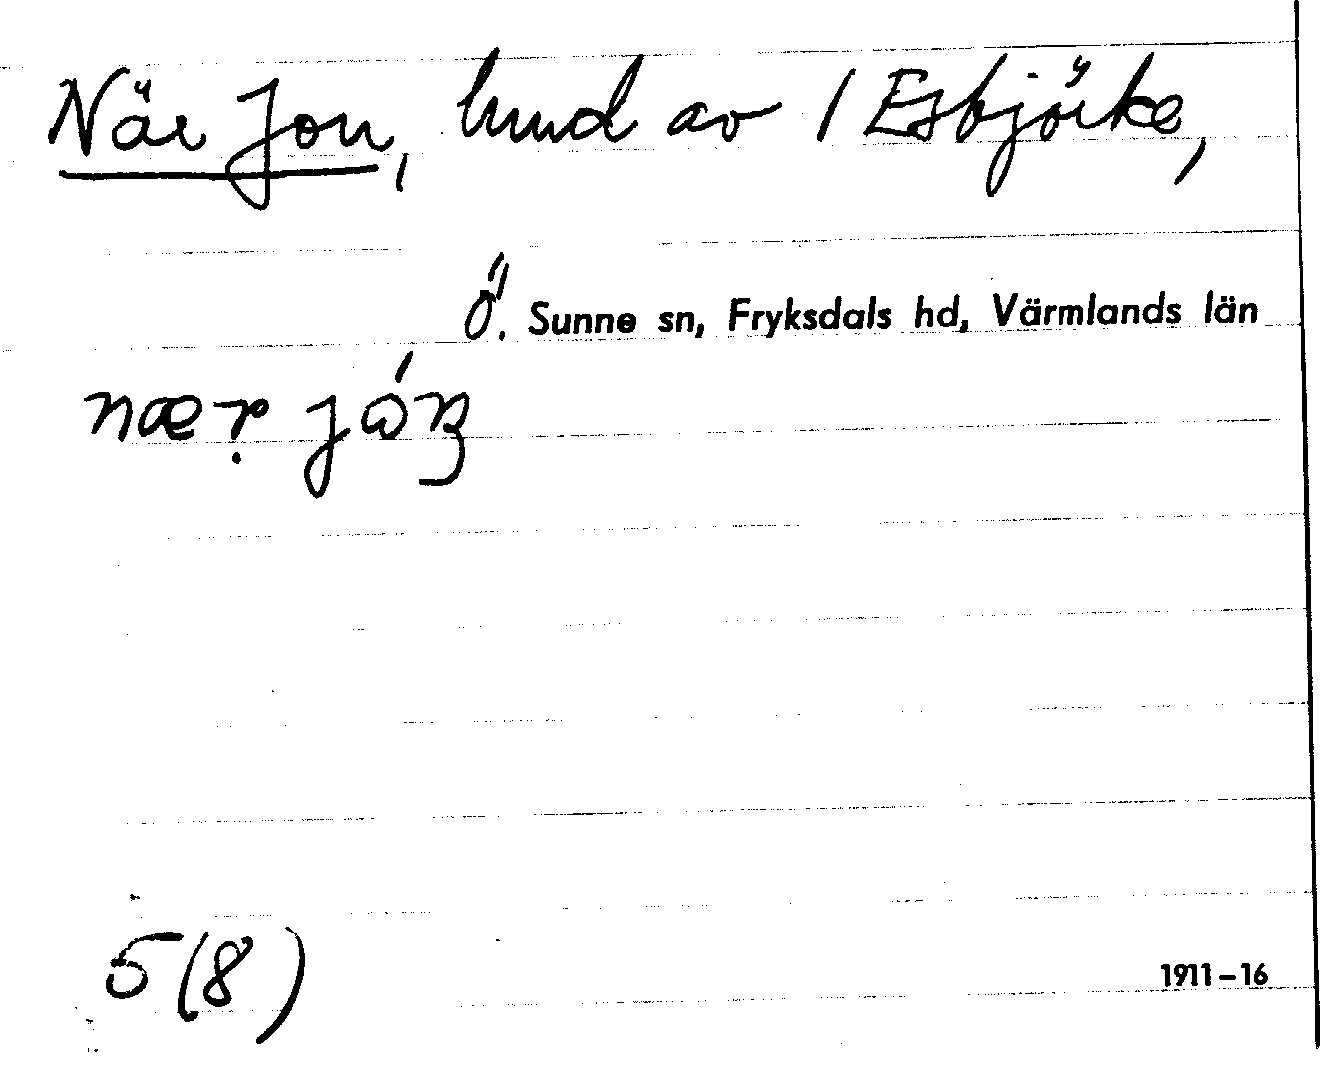 När Jon, hmd av 1 Esbjörke,
Ö. Sunne sn, Fryksdals hd, Värmlands län
5(8)
1911-16